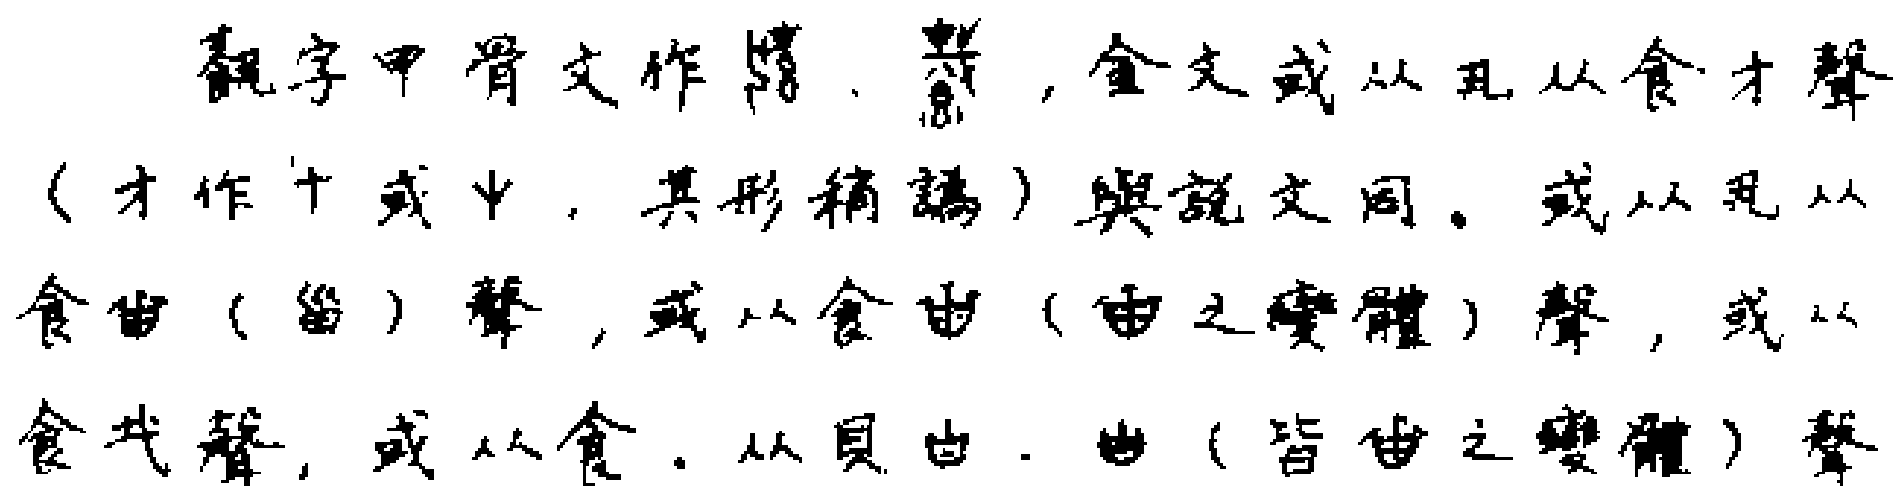 字甲骨文作、，金文或从丮从食才聲
（才作十或，其形稍譌）與說文同。或从丮从
食甾（甾）聲，或从食甾（甾之變體）聲，或从
食𢦏聲，或从食、从貝由、由（皆甾之變體）聲